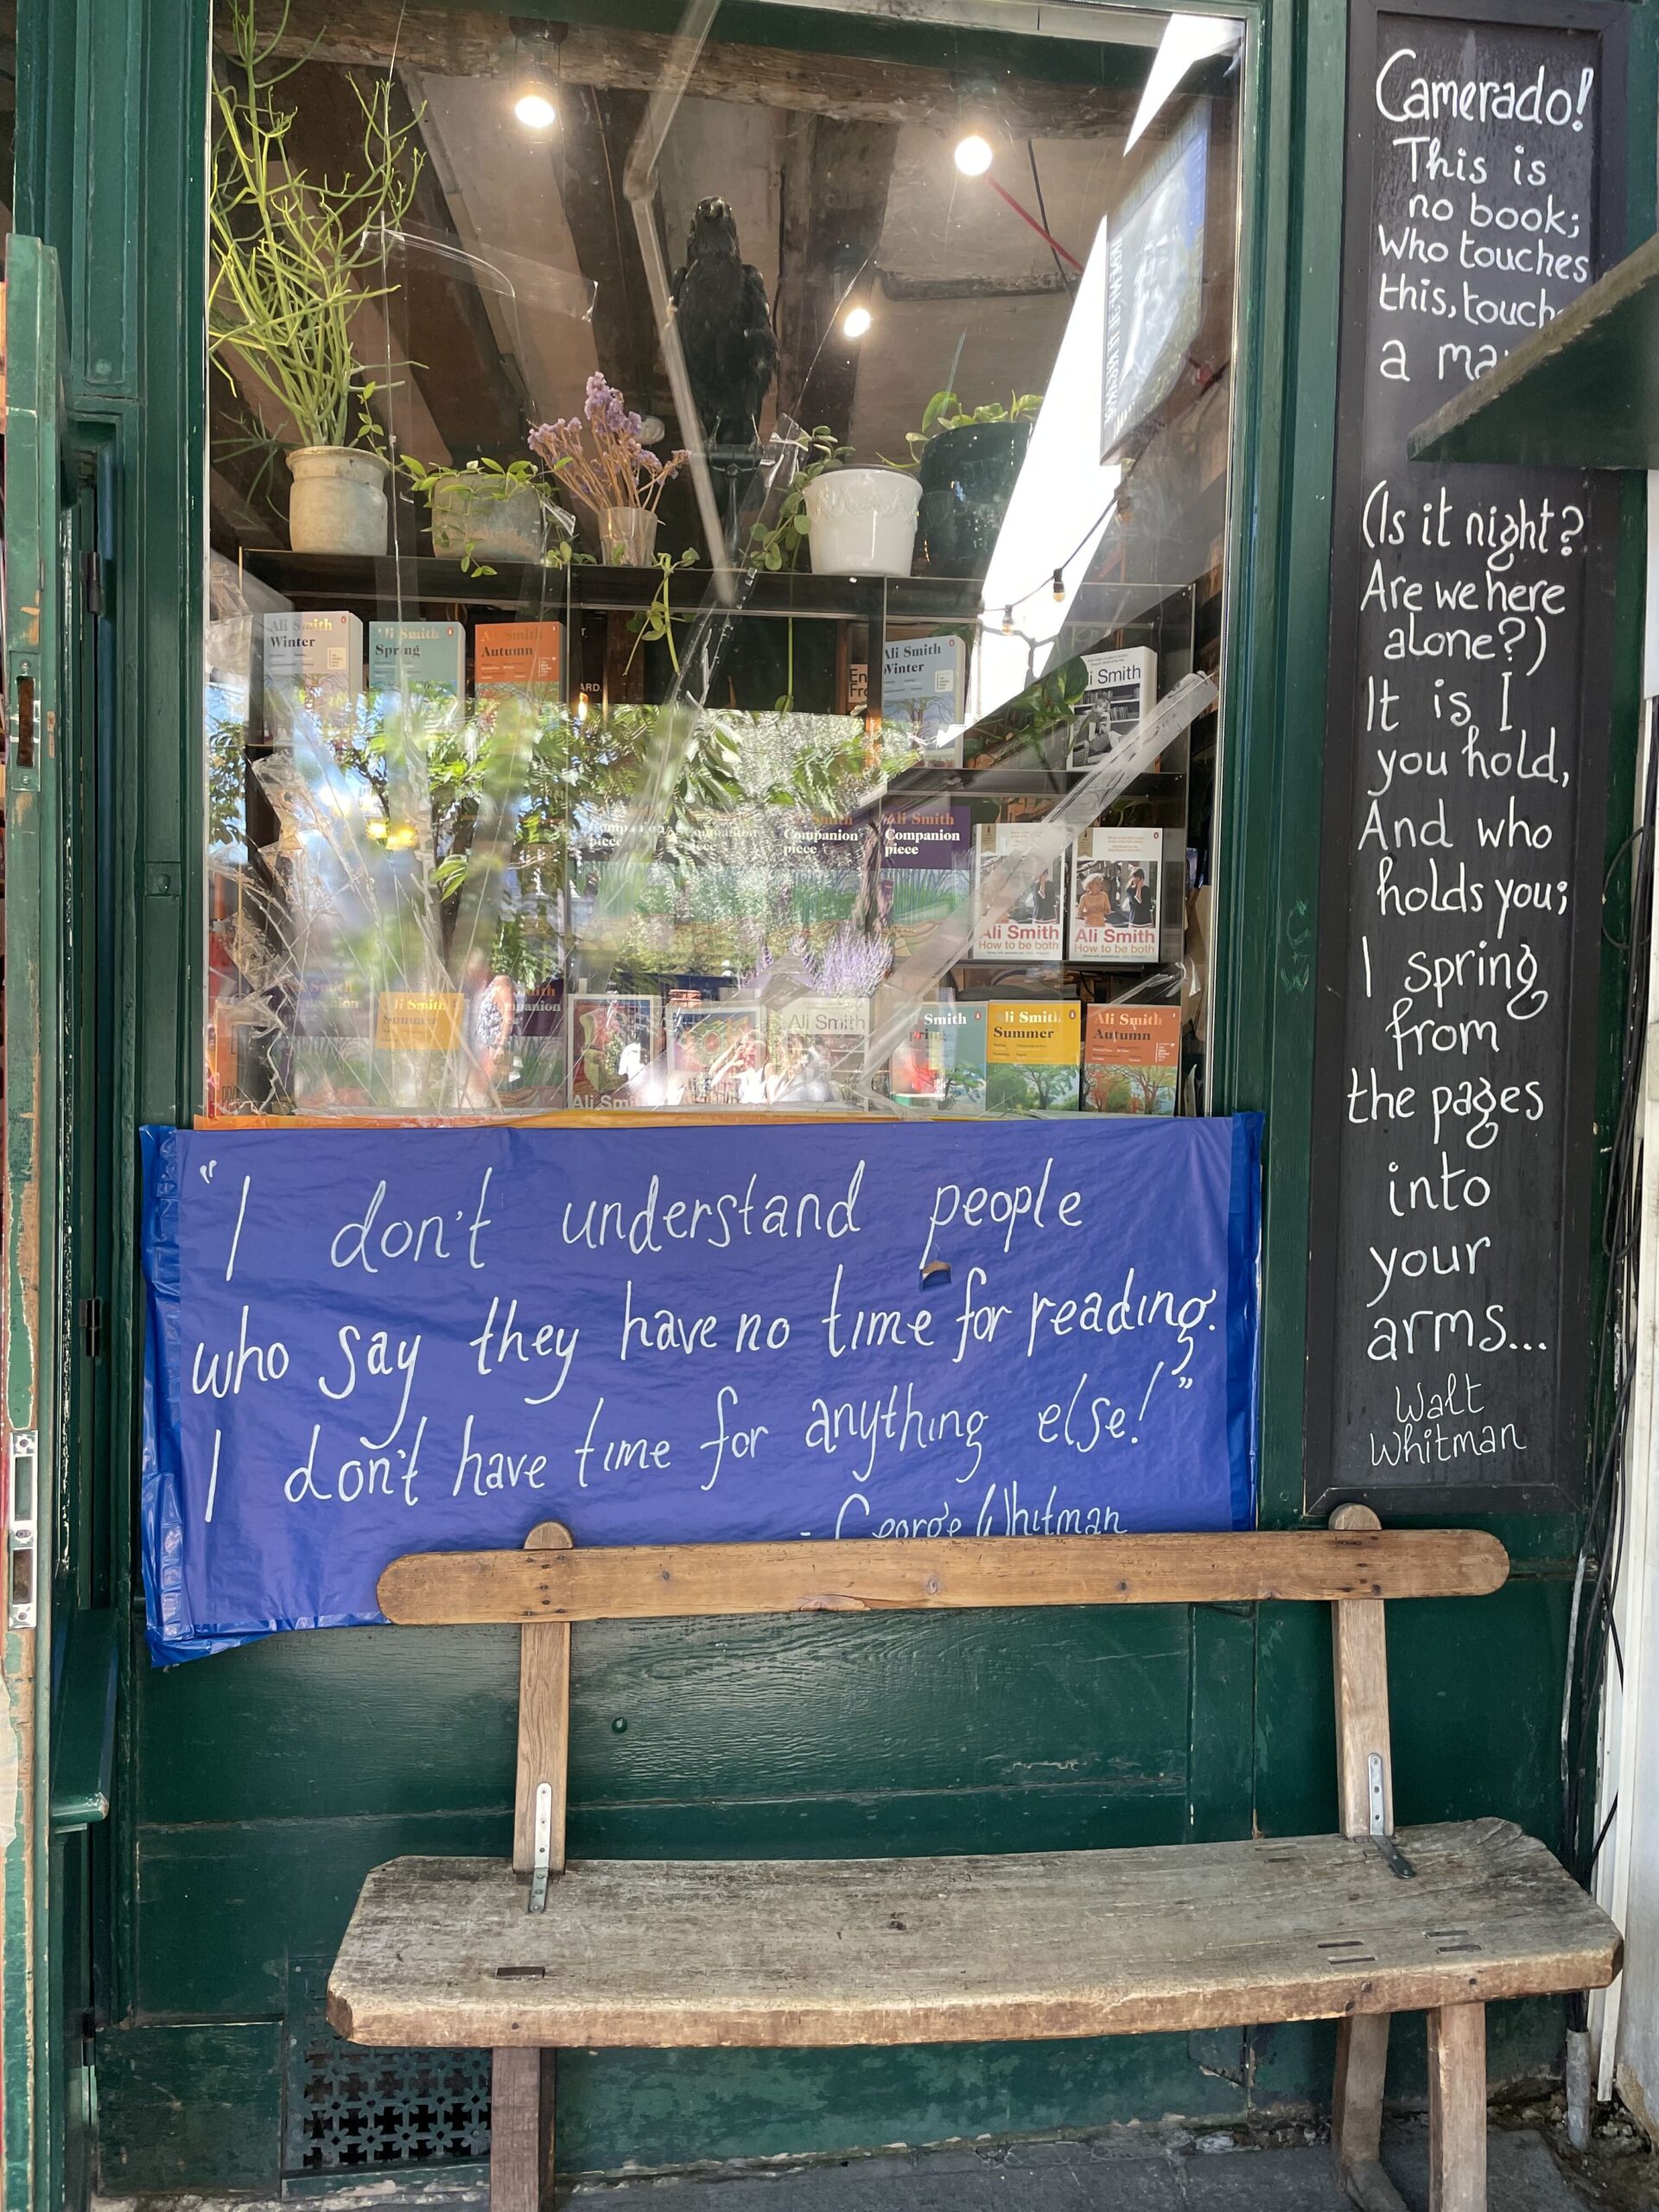 Ali Smith
Winter
Ali Smith
Spring
Ali Smith
Autumn
Ali Smith
Winter
Smith
Ali Smith
Companion
piece
Ali Smith
Companion
piece
Ali Smith
How to be both
Ali Smith
How to be both
Ali Smith
Summer
Ali Smith
Smith
Ali Smith
Summer
Ali Smith
Autumn
"I don't understand people
who say they have no time for reading.
I don't have time for anything else!"
- George Whitman
Camerado!
This is
no book;
Who touches
this, touch
a
(Is it night?
Are we here
alone?)
It is I
you hold,
And who
holds you;
I spring
from
the pages
into
your
arms...
Walt
Whitman